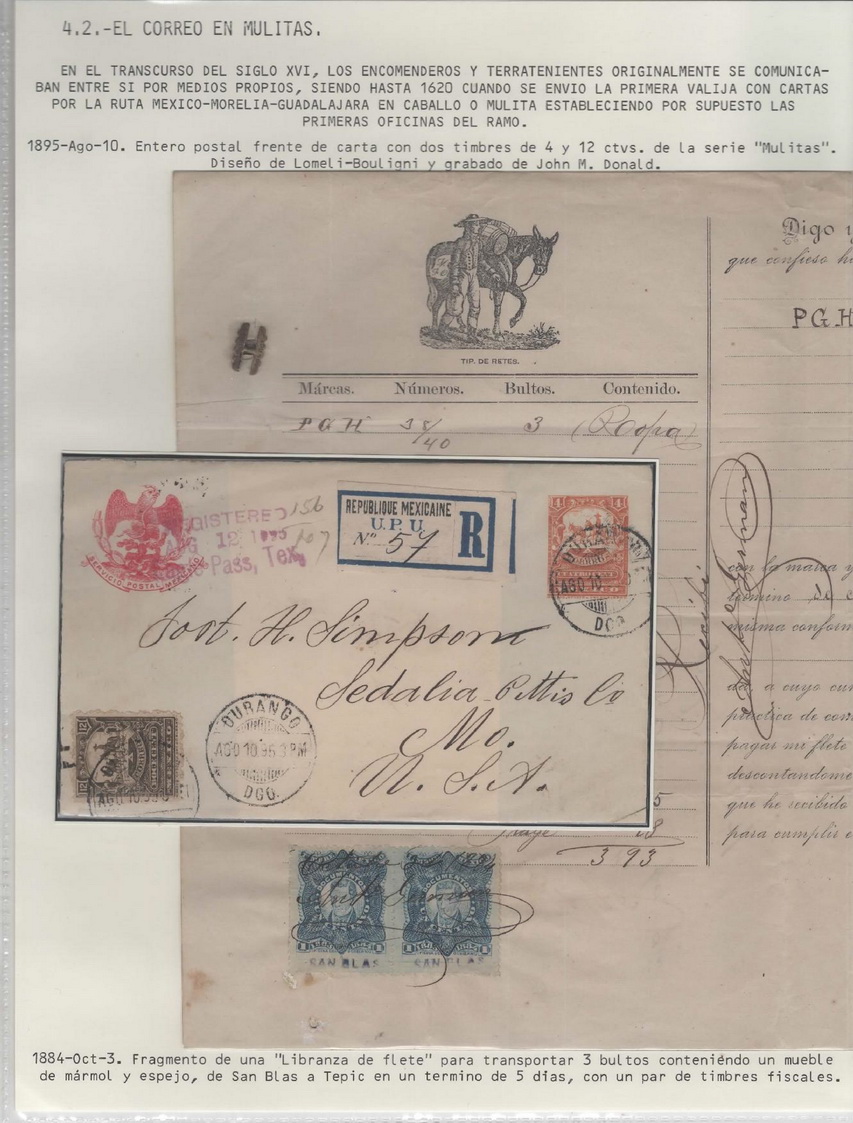 4.2.-EL CORREO EN MULITAS.
EN EL TRANSCURSO DEL SIGLO XVI, LOS ENCOMENDEROS Y TERRATENIENTES ORIGINALMENTE SE COMUNICA-
BAN ENTRE SI POR MEDIOS PROPIOS, SIENDO HASTA 1620 CUANDO SE ENVIO LA PRIMERA VALIJA CON CARTAS
POR LA RUTA MEXICO-MORELIA-GUADALAJARA EN CABALLO O MULITA ESTABLECIENDO POR SUPUESTO LAS
PRIMERAS OFICINAS DEL RAMO.
1895-Ago-10. Entero postal frente de carta con dos timbres de 4 y 12 ctvs. de la serie "Mulitas".
Diseño de Lomeli-Bouligni y grabado de John M. Donald.
Digo y
que confieso ha
P G H
TIP. DE RETES.
Márcas. Números. Bultos. Contenido.
P G H 38/40 3 (Ropa)
GISTERED 156
12 1895 107
Pass, Tex.
SERVICIO POSTAL MEXICANO
REPUBLIQUE MEXICAINE
U.P.U.
Nº 57 R
4 4
DURANGO
AGO 10
DGO.
Post. H. Simpson
Sedalia Pettis Co
Mo.
U. S. A.
12 12
AGO 10
DURANGO
AGO 10 95 3 PM
DGO.
Recibi
con la marca y
término de c
misma conform
da, a cuyo cum
práctica de com
pagar mi flete
descontandome
que he recibido
para cumplir c
5
18
3 93
DOCUMENTOS DOCUMENTOS
SAN BLAS SAN BLAS
1884-Oct-3. Fragmento de una "Libranza de flete" para transportar 3 bultos conteniéndo un mueble
de mármol y espejo, de San Blas a Tepic en un termino de 5 dias, con un par de timbres fiscales.